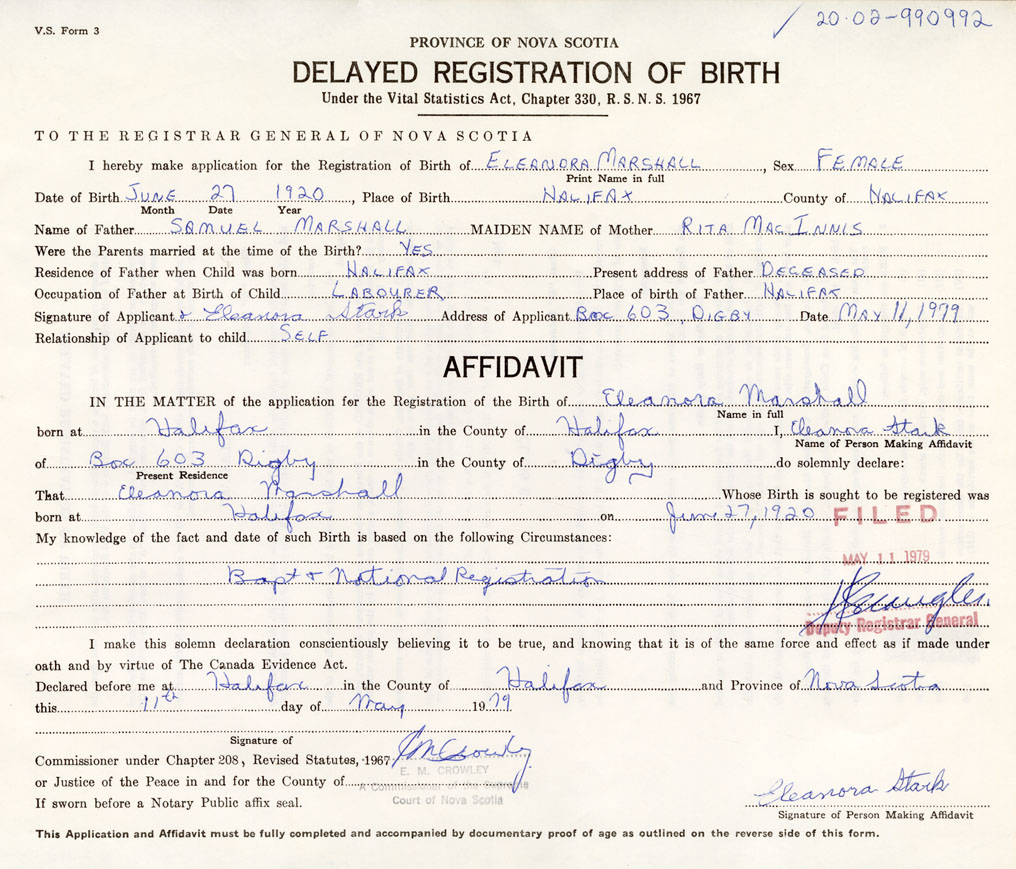 20·02-990992
V.S. Form 3
PROVINCE OF NOVA SCOTIA
DELAYED REGISTRATION OF BIRTH
Under the Vital Statistics Act, Chapter 330, R. S. N. S. 1967
TO THE REGISTRAR GENERAL OF NOVA SCOTIA
I hereby make application for the Registration of Birth of ELEANORA MARSHALL, Sex FEMALE
Print Name in full
Date of Birth JUNE 27 1920, Place of Birth HALIFAX County of HALIFAX
Month Date Year
Name of Father SAMUEL MARSHALL MAIDEN NAME of Mother RITA MACINNIS
Were the Parents married at the time of the Birth? YES
Residence of Father when Child was born HALIFAX Present address of Father DECEASED
Occupation of Father at Birth of Child LABOURER Place of birth of Father HALIFAX
Signature of Applicant Eleanora Stark Address of Applicant Box 603, DIGBY Date MAY 11, 1979
Relationship of Applicant to child SELF
AFFIDAVIT
IN THE MATTER of the application for the Registration of the Birth of Eleanora Marshall
Name in full
born at Halifax in the County of Halifax I, Eleanora Stark
Name of Person Making Affidavit
of Box 603 Digby in the County of Digby do solemnly declare:
Present Residence
That Eleanora Marshall Whose Birth is sought to be registered was
born at Halifax on June 27, 1920 FILED
My knowledge of the fact and date of such Birth is based on the following Circumstances:
MAY 11 1979
Bapt + National Registration
Deputy Registrar General
I make this solemn declaration conscientiously believing it to be true, and knowing that it is of the same force and effect as if made under
oath and by virtue of The Canada Evidence Act.
Declared before me at Halifax in the County of Halifax and Province of Nova Scotia
this 11th day of May 1979
Signature of
Commissioner under Chapter 208, Revised Statutes, 1967 EMCrowley
E. M. CROWLEY
or Justice of the Peace in and for the County of
A Commissioner of the Supreme
Court of Nova Scotia
If sworn before a Notary Public affix seal.
Eleanora Stark
Signature of Person Making Affidavit
This Application and Affidavit must be fully completed and accompanied by documentary proof of age as outlined on the reverse side of this form.